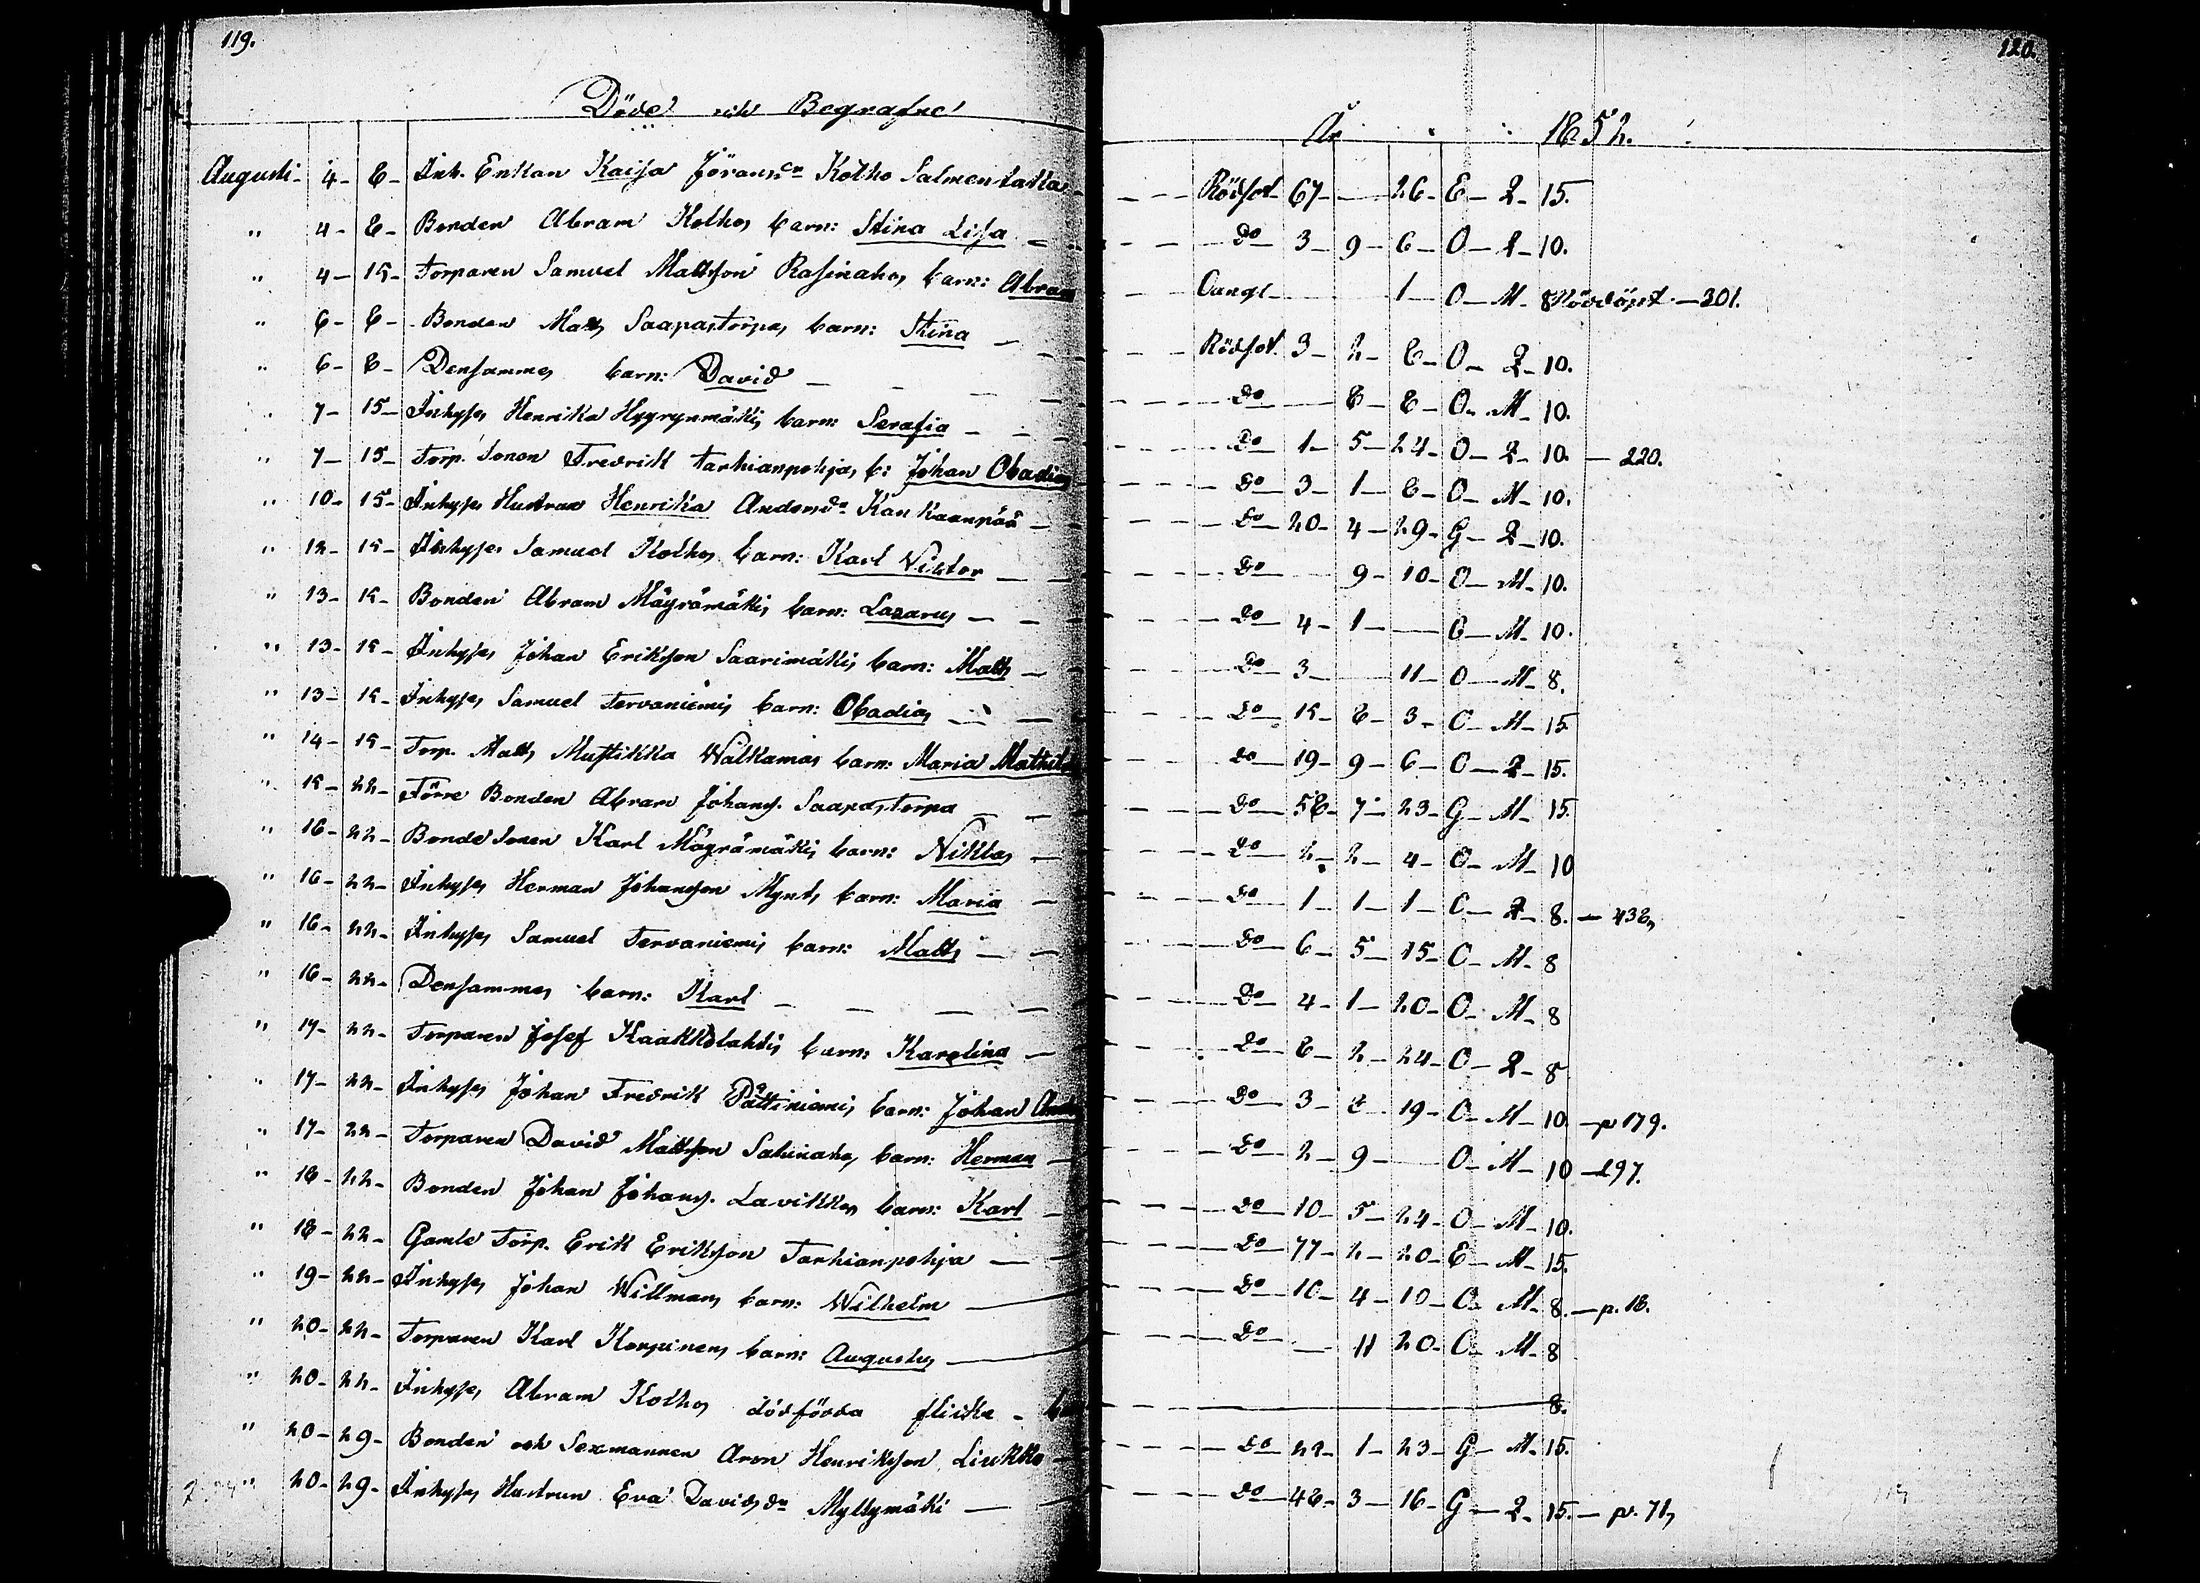 119.
120.
Döde och Begrafne
År 1852.
Augusti - 4 - 8 - Inh. Enkan Kaisa Jöransdr Kolho Salmentakka - Rödsot 67 - 26 - E - Q - 15.
" 4 - 8 - Bonden Abram Kolhos barn: Stina Lisa - Do 3 - 9 - 6 - O - Q - 10.
" 4 - 15 - Torparen Samuel Mattsson Rasinahos barn: Abram - Oangl. 1 - O - M - 8 Nöddöpt - 301.
" 6 - 8 - Bonden Matts Saapastorpas barn: Stina - Rödsot. 3 - 2 - 8 - O - Q - 10.
" 6 - 8 - Densammes barn: David - Do 8 - 8 - O - M - 10.
" 7 - 15 - Inhyses Henrika Hyyrynmäkis barn: Serafia - Do 1 - 5 - 24 - O - Q - 10. - 220.
" 7 - 15 - Torp. Sonen Fredrik Tarhianpohjas b: Johan Obadias - Do 3 - 1 - 8 - O - M - 10.
" 10 - 15 - Inhyses Hustrun Henrika Andersdr Kankaanpää - Do 20 - 4 - 29 - G - Q - 10.
" 12 - 15 - Inhyses Samuel Kolhos barn: Karl Viktor - Do 9 - 10 - O - M - 10.
" 13 - 15 - Bonden Abram Mäyrämäkis barn: Lazarus - Do 4 - 1 - O - M - 10.
" 13 - 15 - Inhyses Johan Eriksson Saarimäkis barn: Matts - Do 3 - 11 - O - M - 8.
" 13 - 15 - Inhyses Samuel Tervaniemis barn: Obadias - Do 15 - 8 - 3 - O - M - 15.
" 14 - 15 - Torp. Matts Mustikka Walkamas barn: Maria - Do 19 - 9 - 6 - O - Q - 15.
" 15 - 22 - Förre Bonden Abram Johanss. Saapastorpa - Do 58 - 7 - 23 - G - M - 15.
" 16 - 22 - Bonde Sonen Karl Mäyrämäkis barn: Niklas - Do 2 - 2 - 4 - O - M - 10
" 16 - 22 - Inhyses Herman Johansson Mynts barn: Maria - Do 1 - 1 - 1 - O - Q - 8. - 438,
" 16 - 22 - Inhyses Samuel Tervaniemis barn: Matts - Do 6 - 5 - 15 - O - M - 8
" 16 - 22 - Densammes barn: Karl - Do 4 - 1 - 20 - O - M - 8
" 17 - 22 - Torparen Josef Kaakkolahtis barn: Karolina - Do 8 - 2 - 24 - O - Q - 8
" 17 - 22 - Inhyses Johan Fredrik Pättiniemis barn: Johan - Do 3 - 8 - 19 - O - M - 10. - p 179.
" 17 - 22 - Torparen David Mattsson Salinahos barn: Herman - Do 2 - 9 - O - M - 10 - 297.
" 18 - 22 - Bonden Johan Johanss. Lavikkos barn: Karl - Do 10 - 5 - 24 - O - M - 10.
" 18 - 22 - Gamle Torp. Erik Eriksson Tarhianpohja - Do 77 - 2 - 20 - E - M - 15.
" 19 - 22 - Inhyses Johan Willmans barn: Wilhelm - Do 10 - 4 - 10 - O - M - 8. - p. 18.
" 20 - 22 - Torparen Karl Korpinens barn: Augustus - Do - 11 20 - O - M - 8
" 20 - 22 - Inhyses Abram Kolhos dödfödda flicka - 8.
" 20 - 29 - Bonden och Sexmannen Aron Henriksson Liukko - Do 22 - 1 - 23 - G - M - 15.
" 20 - 29 - Inhyses Hustrun Eva Davidsdr Myllymäki - Do 48 - 3 - 16 - G - Q - 15. - p. 71,